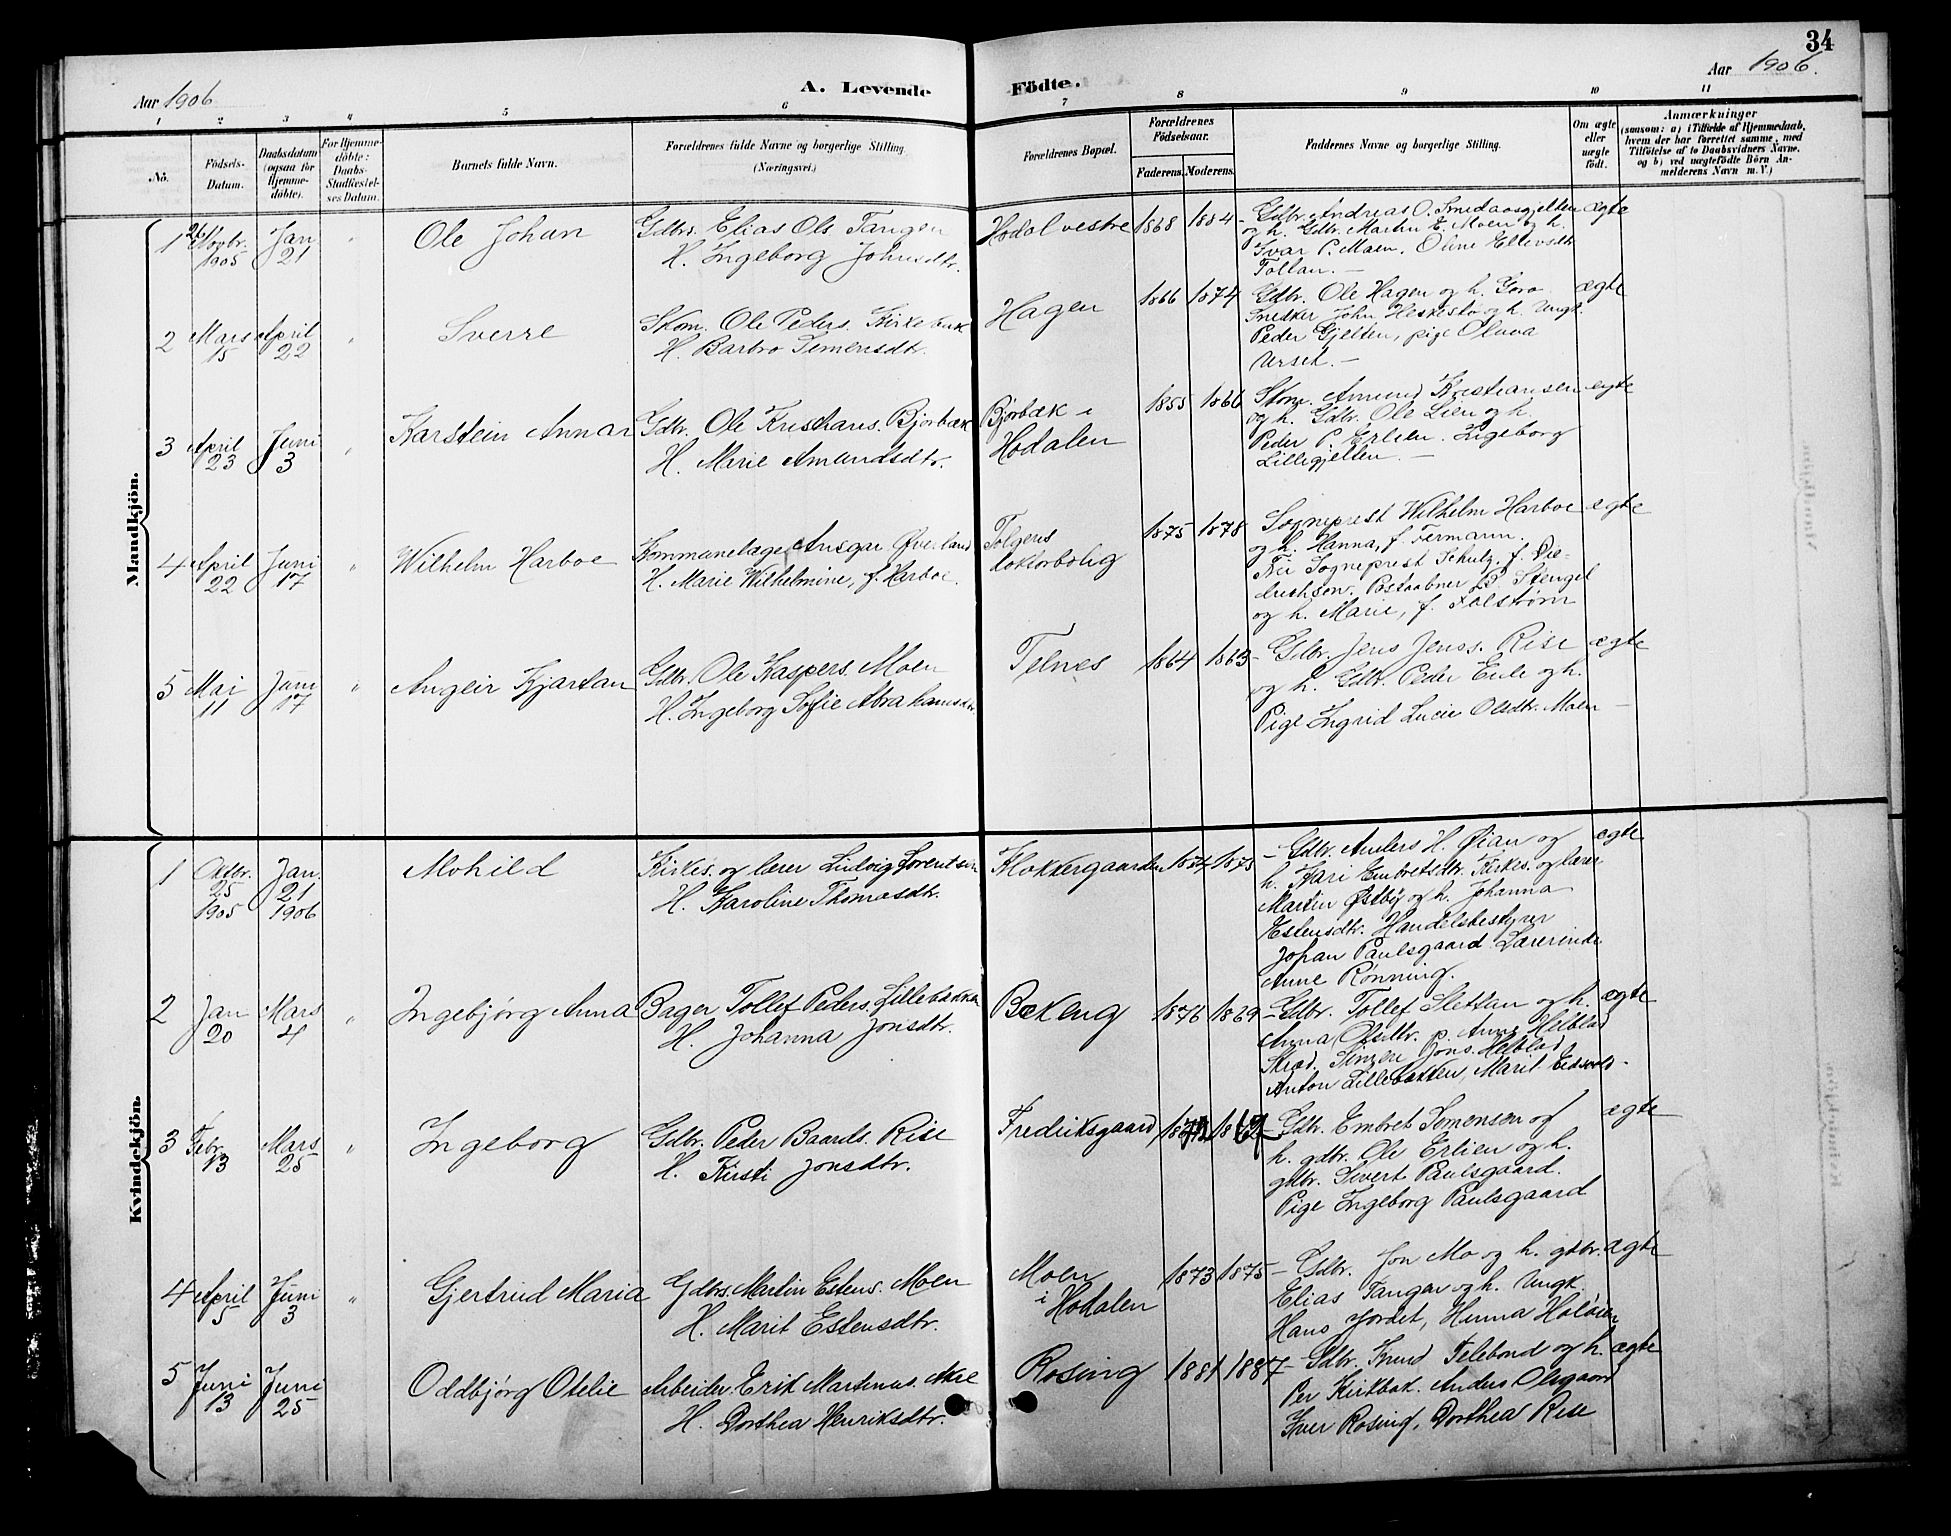 34
Aar 1906
A. Levende
Födte.
Aar 1906.
1 2 3 4 5 6 7 8 9 10 11
No.
Födsels-
Datum.
Daabsdatum
(ogsaa for
Hjemme-
döbte).
For Hjemme-
döbte:
Daabs-
Stadfæstel-
ses Datum.
Barnets fulde Navn.
Forældrenes fulde Navne og borgerlige Stilling.
(Næringsvei.)
Forældrenes Bopæl.
Forældrenes
Födselsaar.
Faderens. Moderens.
Faddernes Navne og borgerlige Stilling.
Om ægte
eller
uægte
født.
Anmærkninger
(saasom: a) i Tilfælde af Hjemmedaab,
hvem der har forrettet samme, med
Tilföielse af to Daabsvidners Navne,
og b) ved uægtefödte Börn An-
melderens Navn m. V.)
Mandkjön.
1 26 Novbr. 1905 Jan 21 " Ole Johan
Gdbr. Elias Ols Tangen
H. Ingeborg Johnsdtr.
Hodal vestre 1868 1884
Gdbr. Andreas O. Smedaasgjelten ægte
og h. Gdbr. Martin E. Moen og h.
Ivar P. Moen. Oline Ellevsdtr
Tollan. —
2 Mars 15 April 22 " Sverre
Skom. Ole Peders. Kirkebæk
H. Barbro Semensdtr.
Hagen 1866 1874
Gdbr. Ole Hagen og h. Goro ægte
Snedker John Heskestø og h. Ungk.
Peder Gjelten, pige Olava
Urset. —
3 April 23 Juni 3 " Karstein Annar
Gdbr. Ole Kristians. Bjørbæk
H. Marie Amundsdtr.
Bjørbæk i
Hodalen
1855 1866
Skom. Amund Kristiansen ægte
og h. Gdbr. Ole Lien og h.
Peder P. Erlien. Ingeborg
Lillegjelten —
4 April 22 Juni 17 " Wilhelm Harboe
Kommunelæge Ansgar Øverland
H. Marie Wilhelmine, f. Harboe.
Tolgens
doktorbolig
1875 1878
Sogneprest Wilhelm Harboe ægte
og h. Hanna, f. Fermann.
Fru Sogneprest Schulz, f. Die-
drichson. Postaabner P. Stengel
og h. Marie, f. Falstrøm
5 Mai 11 Juni 17 " Angeir Kjartan
Gdbr. Ole Kaspers. Moen
H. Ingeborg Sofie Abrahamsdtr.
Telnes 1864 1863
Gdbr. Jens Jenss. Rise ægte
og h. Gdbr. Peder Eide og h.
Pige Ingrid Lucie Olsdtr. Moen —
Kvindekjön.
1 Oktbr. 25 1905 Jan. 21 1906 Mohild
Kirkes. og lærer Ludvig Lorentsen
H. Karoline Thomasdtr.
Klokkergaarden 1874 1875
Gdbr. Anders H. Øian og ægte
h. Kari Embretsdtr. Kirkes. og lærer
Martin Østby og h. Johanna
Estensdtr. Handelsbestyrer
Johan Paulsgaard. Lærerinde
Anne Rønning.
2 Jan 20 Mars 4 " Ingebjørg Anna
Bager Tollef Peders. Lillebakken
H. Johanna Jonsdtr.
Bækeng 1876 1869
Gdbr. Tollef Slettan og h. ægte
Anna Olsdtr. p. Anne Helblad
Skræd. Jons. Helblad
Anton Lillebakken, Marit Eidsvold —
3 Febr. 13 Mars 25 " Ingeborg
Gdbr. Peder Baards. Rise
H. Kirsti Jonsdtr.
Fredriksgaard 1872 1867
Gdbr. Embret Semensen og ægte
h. gdbr. Ole Erlien og h.
gdbr. Sivert Paulsgaard.
Pige Ingeborg Paulsgaard
4 April 5 Juni 3 " Gjertrud Maria
Gdbrs. Martin Estens. Moen
H. Marit Estensdtr.
Moen
i Hodalen
1873 1875
Gdbr. Jon Mo og h. gdbr. ægte
Elias Tangen og h. Ungk.
Hans Jordet, Hanna Holøien
5 Juni 13 Juni 25 Oddbjørg Otelie
Arbeider Erik Martinus. Aase
H. Dorthea Henriksdtr.
Rosing 1881 1887
Gdbr. Knud Telebond og h. ægte
Per Kirkbak. Anders Olsgaard
Iver Rosing, Dorthea Rise